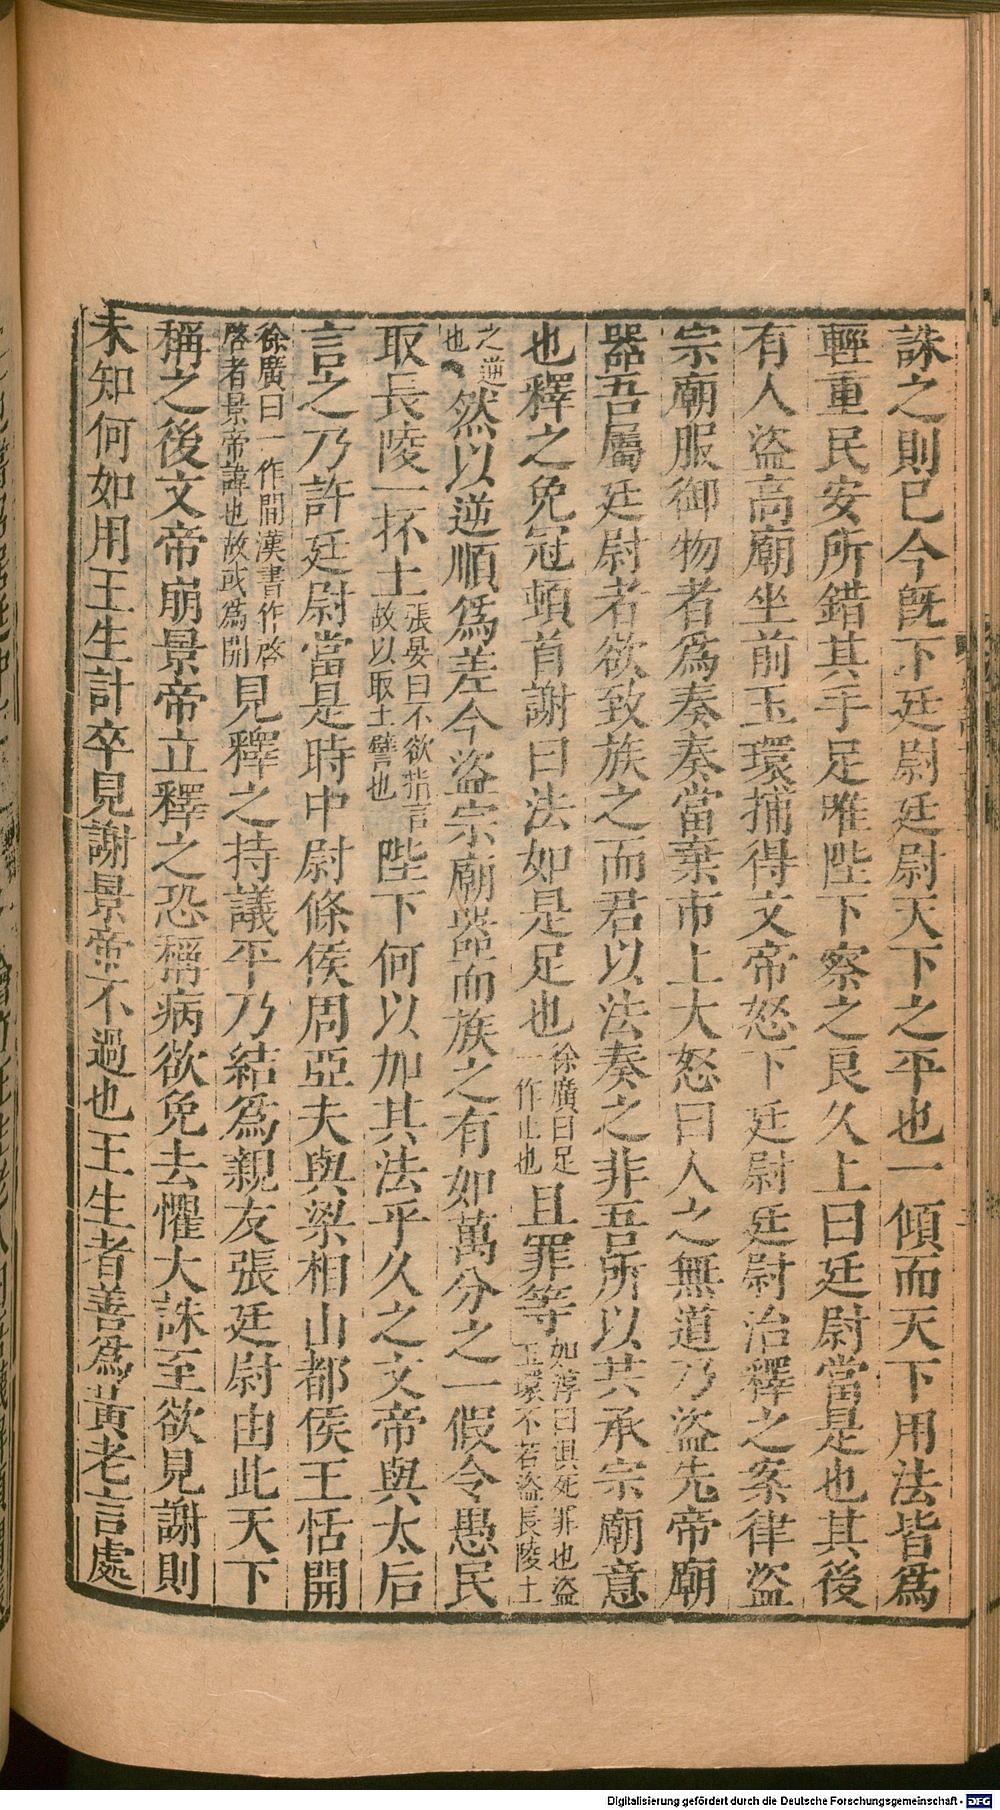 誅之則已今旣下廷尉廷尉天下之平也一傾而天下用法皆爲
輕重民安所錯其手足唯陛下察之良久上曰廷尉當是也其後
有人盜高廟坐前玉環捕得文帝怒下廷尉治釋之案律盜
宗廟服御物者爲奏奏當棄市上大怒曰人之無道乃盜先帝廟
器吾屬廷尉者欲致族之而君以法奏之非吾所以共承宗廟意
也釋之免冠頓首謝曰法如是足也徐廣曰足一作止也且罪等如淳曰俱死罪也盜玉環不若盜長陵土
之逆也然以逆順爲差今盜宗廟器而族之有如萬分之一假令愚民
取長陵一抔土張晏曰不欲指言故以取土譬也陛下何以加其法乎久之文帝與太后
言之乃許廷尉當是時中尉條侯周亞夫與梁相山都侯王恬開
徐廣曰一作閒漢書作啓啓者景帝諱也故或爲開見釋之持議平乃結爲親友張廷尉由此天下
稱之後文帝崩景帝立釋之恐稱病欲免去懼大誅至欲見謝則
未知何如用王生計卒見謝景帝不過也王生者善爲黃老言處
Digitalisierung gefördert durch die Deutsche Forschungsgemeinschaft - DFG